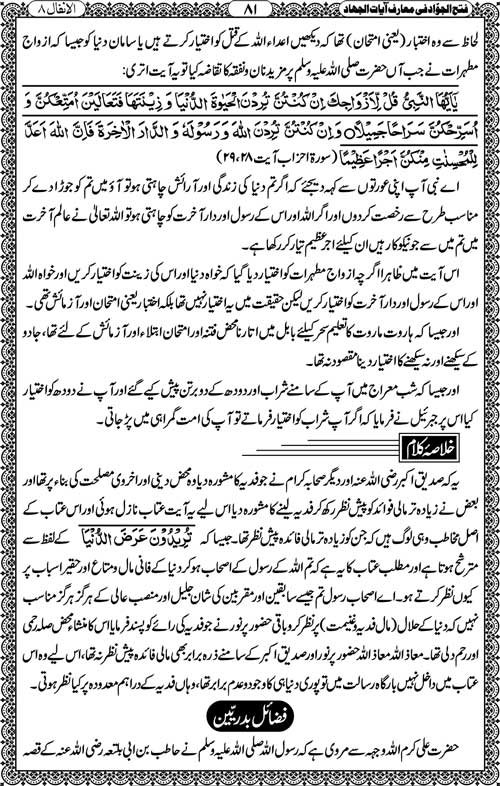 فتح الجوّاد فی معارف آیات الجھاد ۸۱ الانفال ۸
لحاظ سے وہ اختبار (یعنی امتحان) تھا کہ دیکھیں اعداء اللہ کے قتل کو اختیار کرتے ہیں یا سامان دنیا کو جیسا کہ ازواج
مطہرات نے جب آں حضرت صلی اللہ علیہ وسلم پر مزید نان و نفقہ کا تقاضہ کیا تو یہ آیت اتری:
یٰٓاَیُّهَا النَّبِیُّ قُلْ لِّاَزْوَاجِكَ اِنْ كُنْتُنَّ تُرِدْنَ الْحَیٰوةَ الدُّنْیَا وَ زِیْنَتَهَا فَتَعَالَیْنَ اُمَتِّعْكُنَّ وَ
اُسَرِّحْكُنَّ سَرَاحًا جَمِیْلًاo وَ اِنْ كُنْتُنَّ تُرِدْنَ اللهَ وَ رَسُوْلَهٗ وَ الدَّارَ الْاٰخِرَةَ فَاِنَّ اللهَ اَعَدَّ
لِلْمُحْسِنٰتِ مِنْكُنَّ اَجْرًا عَظِیْمًا (سورۃ احزاب آیت ۲۹،۲۸)
اے نبی آپ اپنی عورتوں سے کہہ دیجئے کہ اگر تم دنیا کی زندگی اور آرائش چاہتی ہو تو آؤ میں تم کو جوڑا دے کر
مناسب طرح سے رخصت کردوں اور اگر اللہ اور اس کے رسول اور دار آخرت کو چاہتی ہو تو اللہ تعالیٰ نے عالم آخرت
میں تم میں سے جو نیکوکار ہیں ان کیلئے اجر عظیم تیار کر رکھا ہے۔
اس آیت میں ظاہرا اگرچہ ازواج مطہرات کو اختیار دیا گیا کہ خواہ دنیا اور اس کی زینت کو اختیار کریں اور خواہ اللہ
اور اس کے رسول اور دار آخرت کو اختیار کریں لیکن حقیقت میں یہ اختیار نہیں تھا بلکہ اختبار یعنی امتحان اور آزمائش تھی۔
اور جیسا کہ ہاروت ماروت کا تعلیم سحر کیلئے بابل میں اتارنا محض فتنہ اور امتحان ابتلاء اور آزمائش کے لئے تھا، جادو
کے سیکھنے اور نہ سیکھنے کا اختیار دینا مقصود نہ تھا۔
اور جیسا کہ شب معراج میں آپ کے سامنے شراب اور دودھ کے دو برتن پیش کیے گئے اور آپ نے دودھ کو اختیار
کیا اس پر جبرئیل نے فرمایا کہ اگر آپ شراب کو اختیار فرماتے تو آپ کی امت گمراہی میں پڑ جاتی۔
خلاصۂ کلام
یہ کہ صدیق اکبر رضی اللہ عنہ اور دیگر صحابہ کرام نے جو فدیہ کا مشورہ دیا وہ محض دینی اور اخروی مصلحت کی بناء پر تھا اور
بعض نے زیادہ تر مالی فوائد کو پیش نظر رکھ کر فدیہ لینے کا مشورہ دیا اس لیے یہ آیت عتاب نازل ہوئی اور اس عتاب کے
اصل مخاطب وہی لوگ ہیں کہ جن کو زیادہ تر مالی فائدہ پیش نظر تھا۔ جیسا کہ تُرِیْدُوْنَ عَرَضَ الدُّنْیَا کے لفظ سے
مترشح ہوتا ہے اور مطلب عتاب کا یہ ہے کہ تم اللہ کے رسول کے اصحاب ہو کر دنیا کے فانی مال و متاع اور حقیر اسباب پر
کیوں نظر کرتے ہو۔ اے اصحاب رسول تم جیسے سابقین اور مقربین کی شان جلیل اور منصب عالی کے ہرگز ہرگز مناسب
نہیں کہ دنیا کے حلال (مال فدیہ و غنیمت) پر نظر کرو باقی حضور پر نور نے جو فدیہ کی رائے کو پسند فرمایا اس کا منشاء محض صلہ رحمی
اور رحم دلی تھا۔ معاذ اللہ معاذ اللہ حضور پر نور اور صدیق اکبر کے سامنے ذرہ برابر بھی مالی فائدہ پیش نظر نہ تھا، اس لیے وہ اس
عتاب میں داخل نہیں بارگاہ رسالت میں تو پوری دنیا ہی کا وجود و عدم برابر تھا، وہاں فدیہ کے دراہم معدودہ پر کیا نظر ہوتی۔
فضائل بدریّین
حضرت علی کرم اللہ وجہہ سے مروی ہے کہ رسول اللہ صلی اللہ علیہ وسلم نے حاطب بن ابی بلتعہ رضی اللہ عنہ کے قصہ